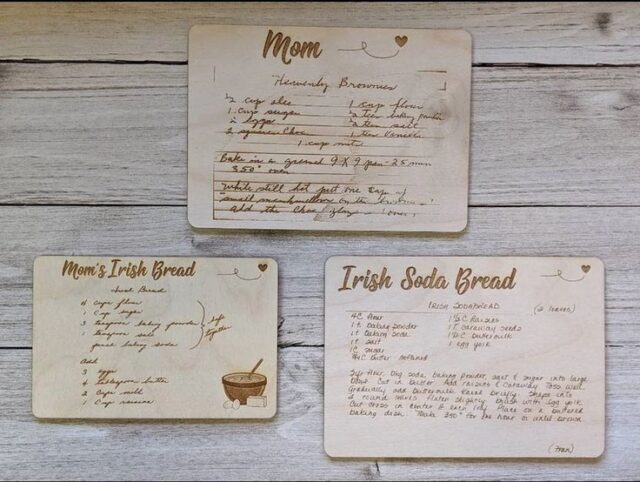 Mom
Heavenly Brownies
½ cup oleo 1 cup flour
1 cup sugar ½ teas baking powder
2 eggs ½ teas salt
2 squares Choc 1 teas Vanilla
1 cup nuts
Bake in a greased 9 X 9 pan - 25 min
350° oven
While still hot put one
small marshmallows on the brownies
add the Choc
Mom's Irish Bread
Irish Bread
4 cups flour
1 Cup sugar
3 teaspoons baking powder
teaspoon salt
baking soda
Sift together
Add
3 eggs
4 tablespoons butter
2 Cups milk
1 Cup raisins
Irish Soda Bread
IRISH SODABREAD (2 loaves)
4C flour 1½C Raisins
1 t. baking powder 1T caraway seeds
1 t. baking soda Buttermilk
1 t. salt 1 egg yolk
1C sugar
¼C butter softened
Sift flour, soda, baking powder, salt & sugar into large
bowl. Cut in butter. Add raisins & caraway. Toss well.
Gradually add buttermilk. Knead briefly. Shape into
2 round loaves. Flatten slightly. Brush with egg yolk.
Cut cross in center of each loaf. Place on a buttered
baking dish. Bake 350° for one hour or until brown.
(Fran)